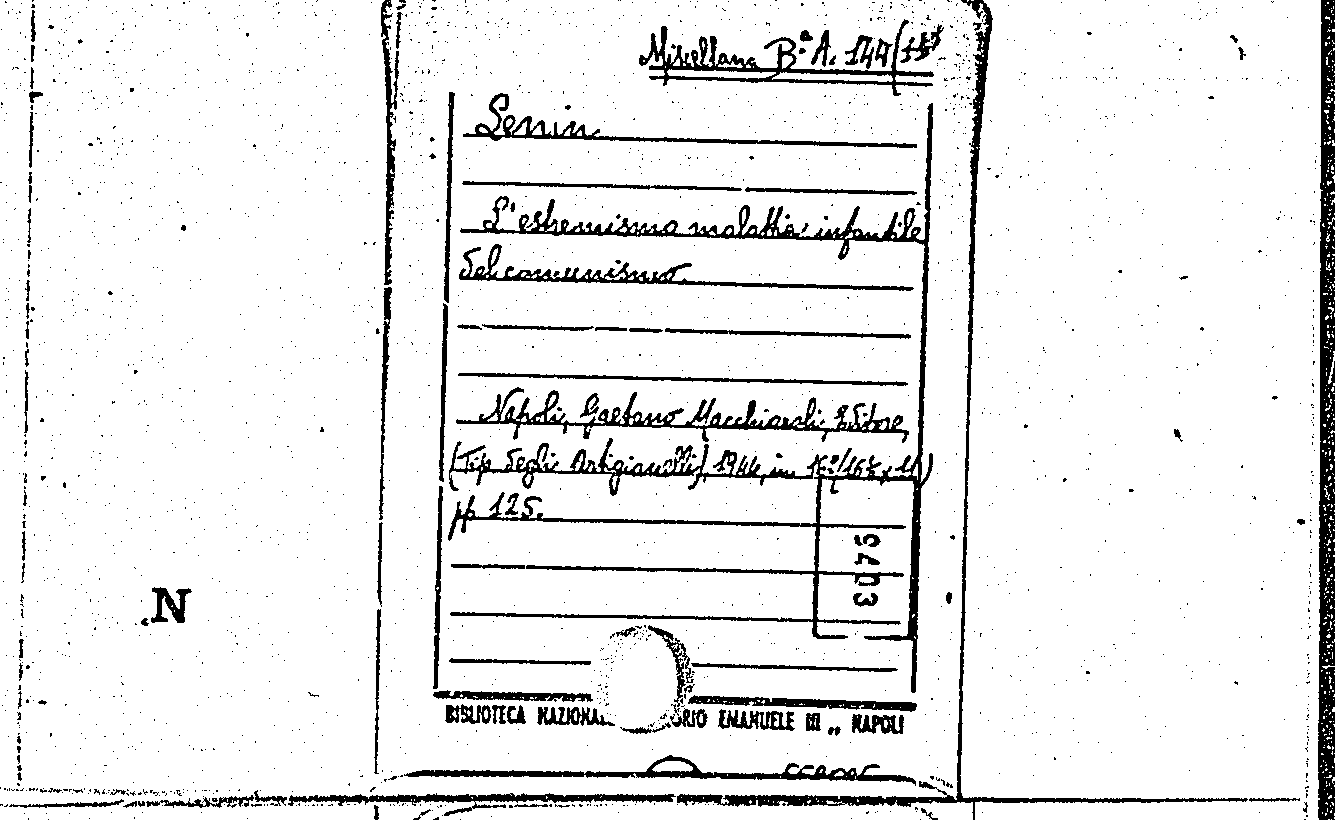 Miscellanea B.ª A. 144(
Lenin
L'estremismo malattia infantile
del comunismo.
Napoli, Gaetano Macchiaroli, Editore,
(Tip. degli Artigianelli), 1944, in 16º
pp. 125.
5403
N
BIBLIOTECA NAZIONA ORIO EMANUELE III „ NAPOLI